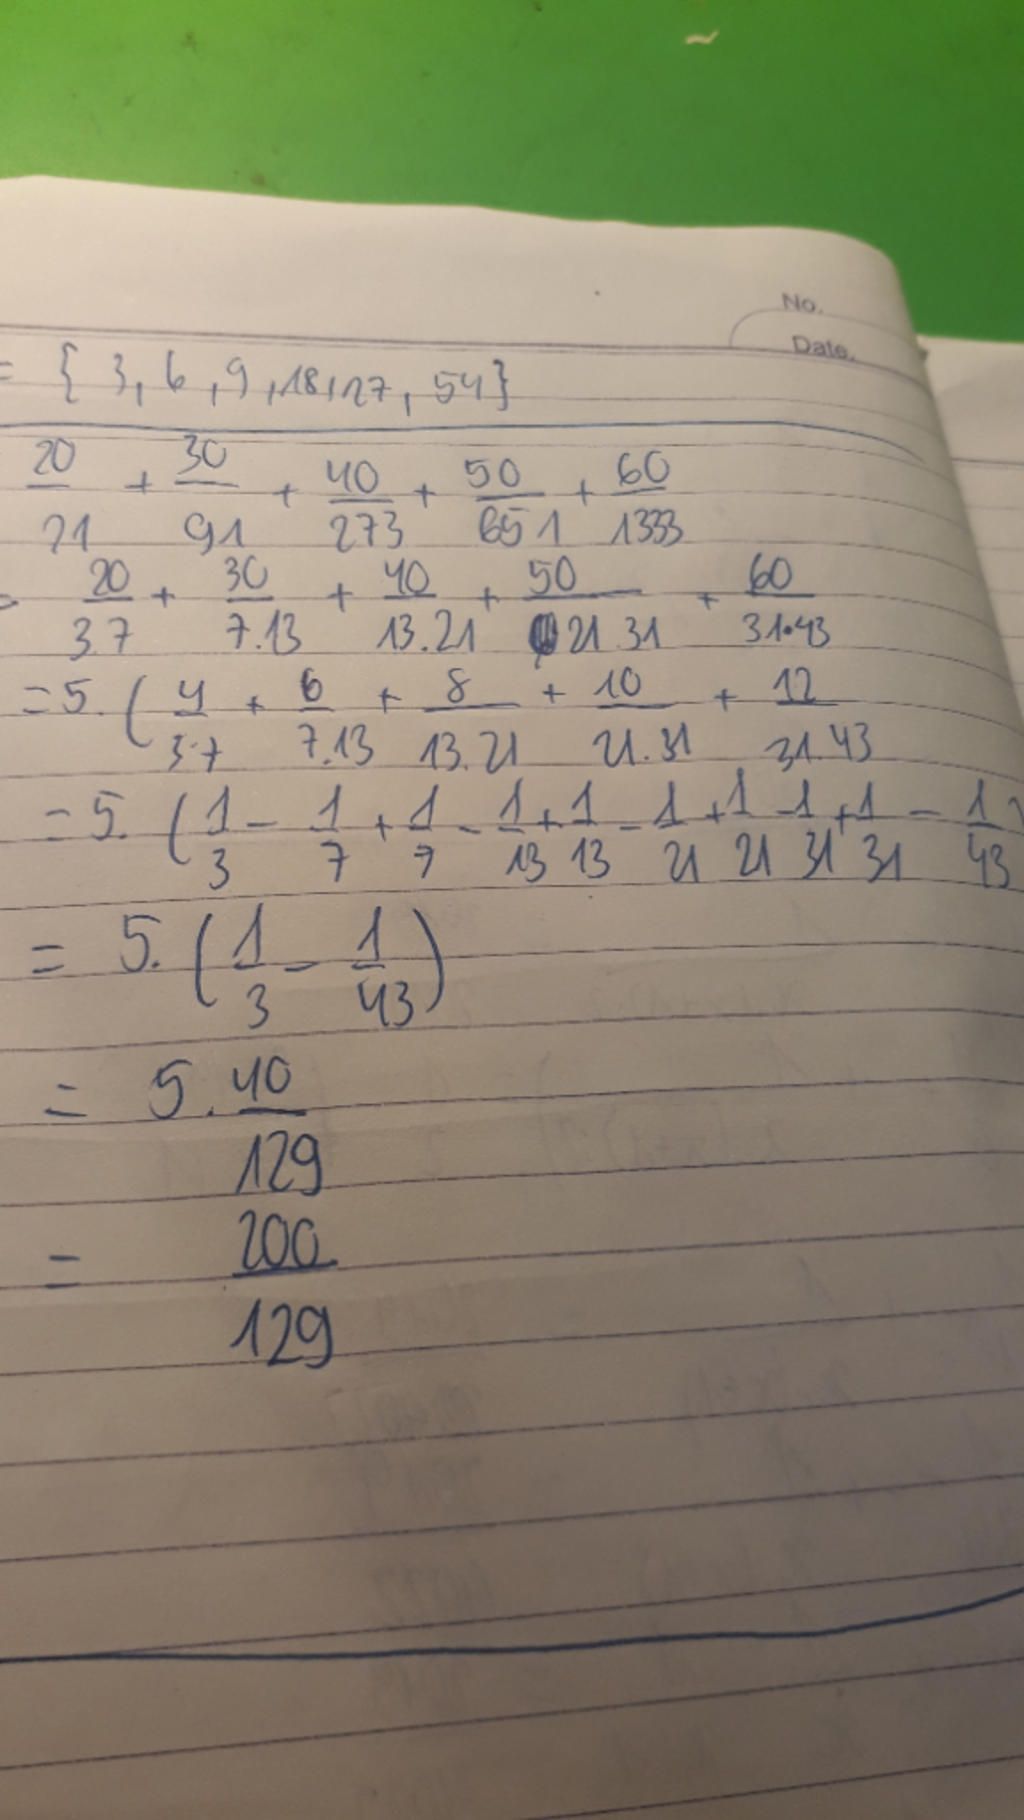 No.
Date.
= { 3, 6, 9, 18, 27, 54}
20/21 + 30/91 + 40/273 + 50/651 + 60/1333
= 20/3.7 + 30/7.13 + 40/13.21 + 50/21.31 + 60/31.43
= 5. ( 4/3.7 + 6/7.13 + 8/13.21 + 10/21.31 + 12/31.43
= 5. ( 1/3 - 1/7 + 1/7 - 1/13 + 1/13 - 1/21 + 1/21 - 1/31 + 1/31 - 1/43 )
= 5. ( 1/3 - 1/43 )
= 5. 40/129
= 200/129